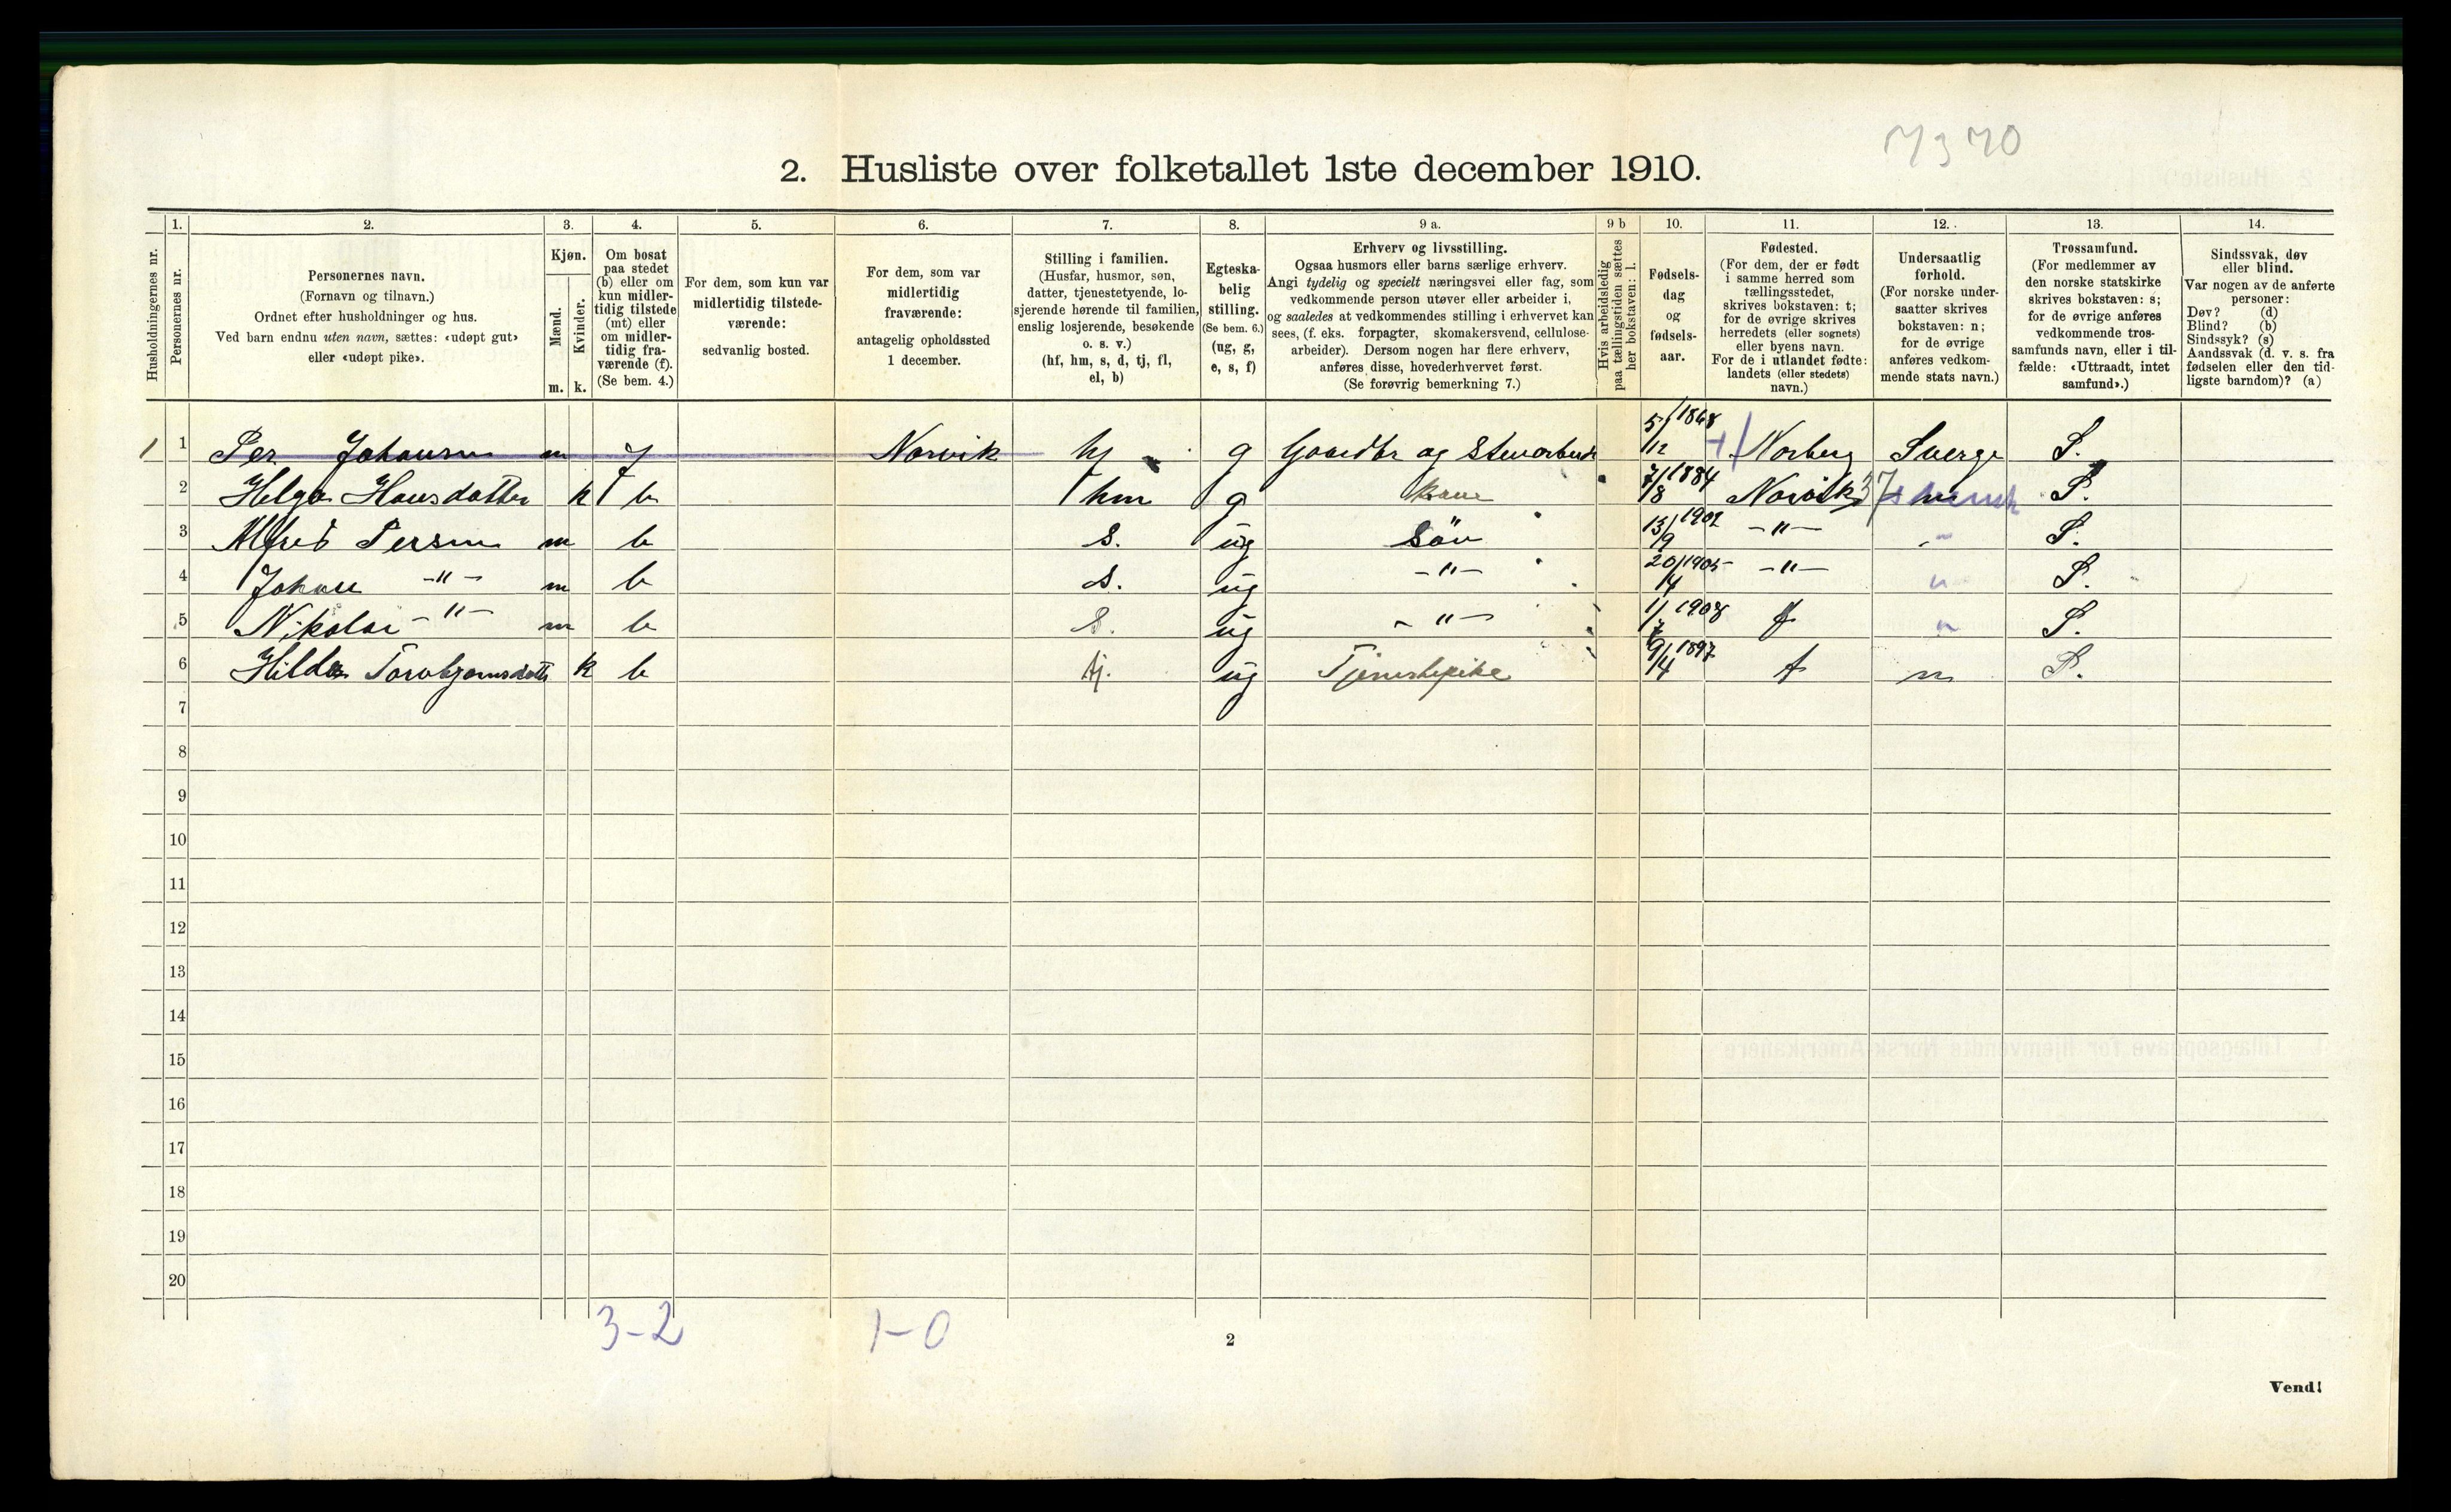 7370
2. Husliste over folketallet 1ste december 1910.
Husholdningernes nr.
1. Personernes nr.
2. Personernes navn.
(Fornavn og tilnavn.)
Ordnet efter husholdninger og hus.
Ved barn endnu uten navn, sættes: «udøpt gut»
eller «udøpt pike».
3. Kjøn.
Mænd. m.
Kvinder. k.
4. Om bosat
paa stedet
(b) eller om
kun midler-
tidig tilstede
(mt) eller
om midler-
tidig fra-
værende (f).
(Se bem. 4.)
5. For dem, som kun var
midlertidig tilstede-
værende:
sedvanlig bosted.
6. For dem, som var
midlertidig
fraværende:
antagelig opholdssted
1 december.
7. Stilling i familien.
(Husfar, husmor, søn,
datter, tjenestetyende, lo-
sjerende hørende til familien,
enslig losjerende, besøkende
o. s. v.)
(hf, hm, s, d, tj, fl,
el, b)
8. Egteska-
belig
stilling.
(Se bem. 6.)
(ug, g,
e, s, f)
9 a. Erhverv og livsstilling.
Ogsaa husmors eller barns særlige erhverv.
Angi tydelig og specielt næringsvei eller fag, som
vedkommende person utøver eller arbeider i,
og saaledes at vedkommendes stilling i erhvervet kan
sees, (f. eks. forpagter, skomakersvend, cellulose-
arbeider). Dersom nogen har flere erhverv,
anføres disse, hovederhvervet først.
(Se forøvrig bemerkning 7.)
9 b Hvis arbeidsledig
paa tællingstiden sættes
her bokstaven: l.
10. Fødsels-
dag
og
fødsels-
aar.
11. Fødested.
(For dem, der er født
i samme herred som
tællingsstedet,
skrives bokstaven: t;
for de øvrige skrives
herredets (eller sognets)
eller byens navn.
For de i utlandet fødte:
landets (eller stedets)
navn.)
12. Undersaatlig
forhold.
(For norske under-
saatter skrives
bokstaven: n;
for de øvrige
anføres vedkom-
mende stats navn.)
13. Trossamfund.
(For medlemmer av
den norske statskirke
skrives bokstaven: s;
for de øvrige anføres
vedkommende tros-
samfunds navn, eller i til-
fælde: «Uttraadt, intet
samfund».)
14. Sindssvak, døv
eller blind.
Var nogen av de anførte
personer:
Døv? (d)
Blind? (b)
Sindssyk? (s)
Aandssvak (d. v. s. fra
fødselen eller den tid-
ligste barndom)? (a)
1 1 Per Johansen m f Norvik hf g Gaardbr og Stenarbeid 5/12 1868 Norberg Sverge S.
2 Helga Hansdatter k b hm g kone 7/8 1884 Norvik n S.
3 Alfred Persen m b s. ug Søn 13/9 1902 -"- S.
4 Johan -"- m b s. ug -"- 20/4 1905 -"- S.
5 Nikolai -"- m b S. ug -"- 1/7 1908 t S.
6 Hilda Torobjornsdatt k b tj. ug Tjenestepike 9/4 1897 t n S.
7
8
9
10
11
12
13
14
15
16
17
18
19
20
3-2 1-0
2
Vend!